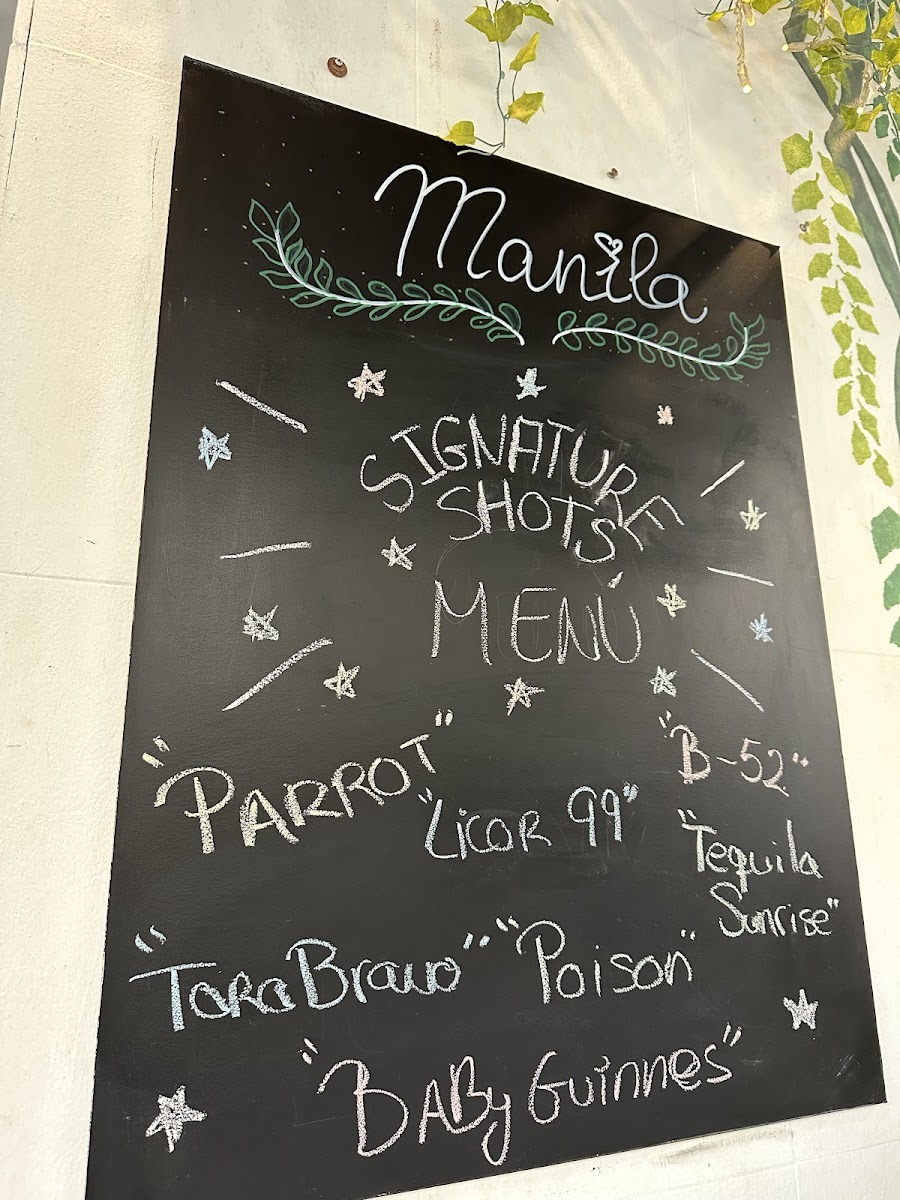 Manila
SIGNATURE
SHOTS
MENÚ
"PARROT"
"B-52"
"LICOR 99"
"Tequila
Sunrise"
"TORO Bravo"
"Poison"
"BABy Guinnes"